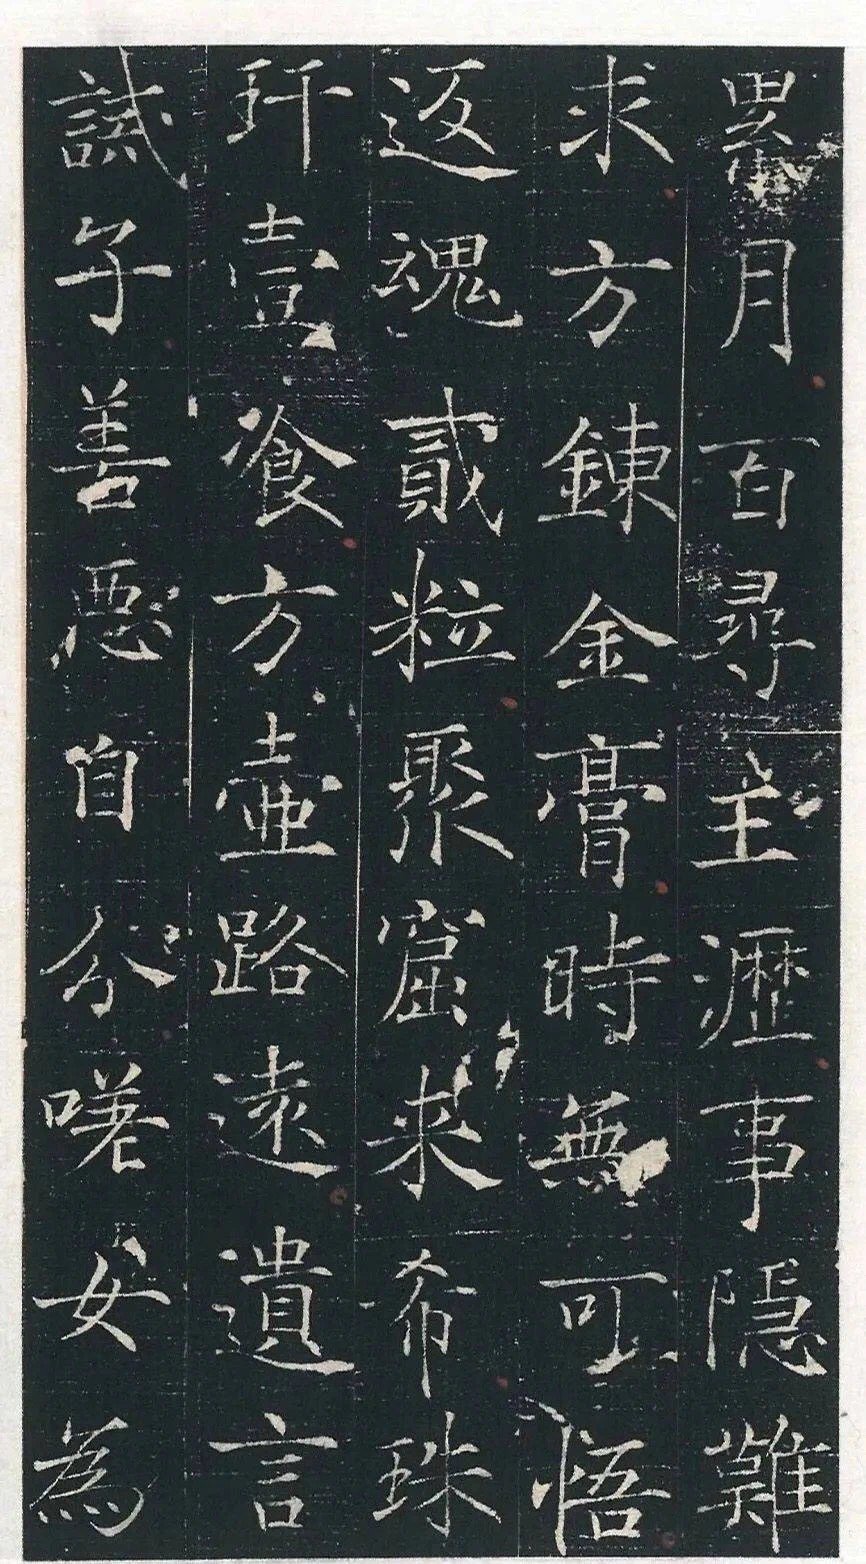 累月百尋主瀝事隱難
求方鍊金膏時無可悟
返魂貳粒聚窟来希珠
玕壹飡方壺路遠遺言
誡子善惡自分嗟女為